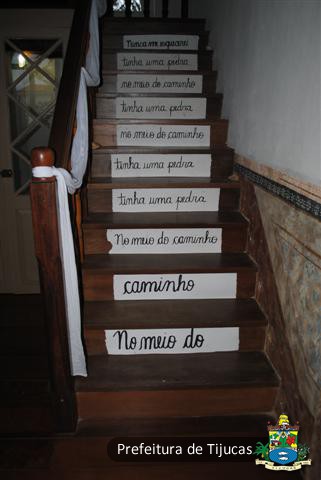 Nunca me esquecerei
tinha uma pedra
no meio do caminho
tinha uma pedra
no meio do caminho
tinha uma pedra
tinha uma pedra
No meio do caminho
caminho
No meio do
Prefeitura de Tijucas